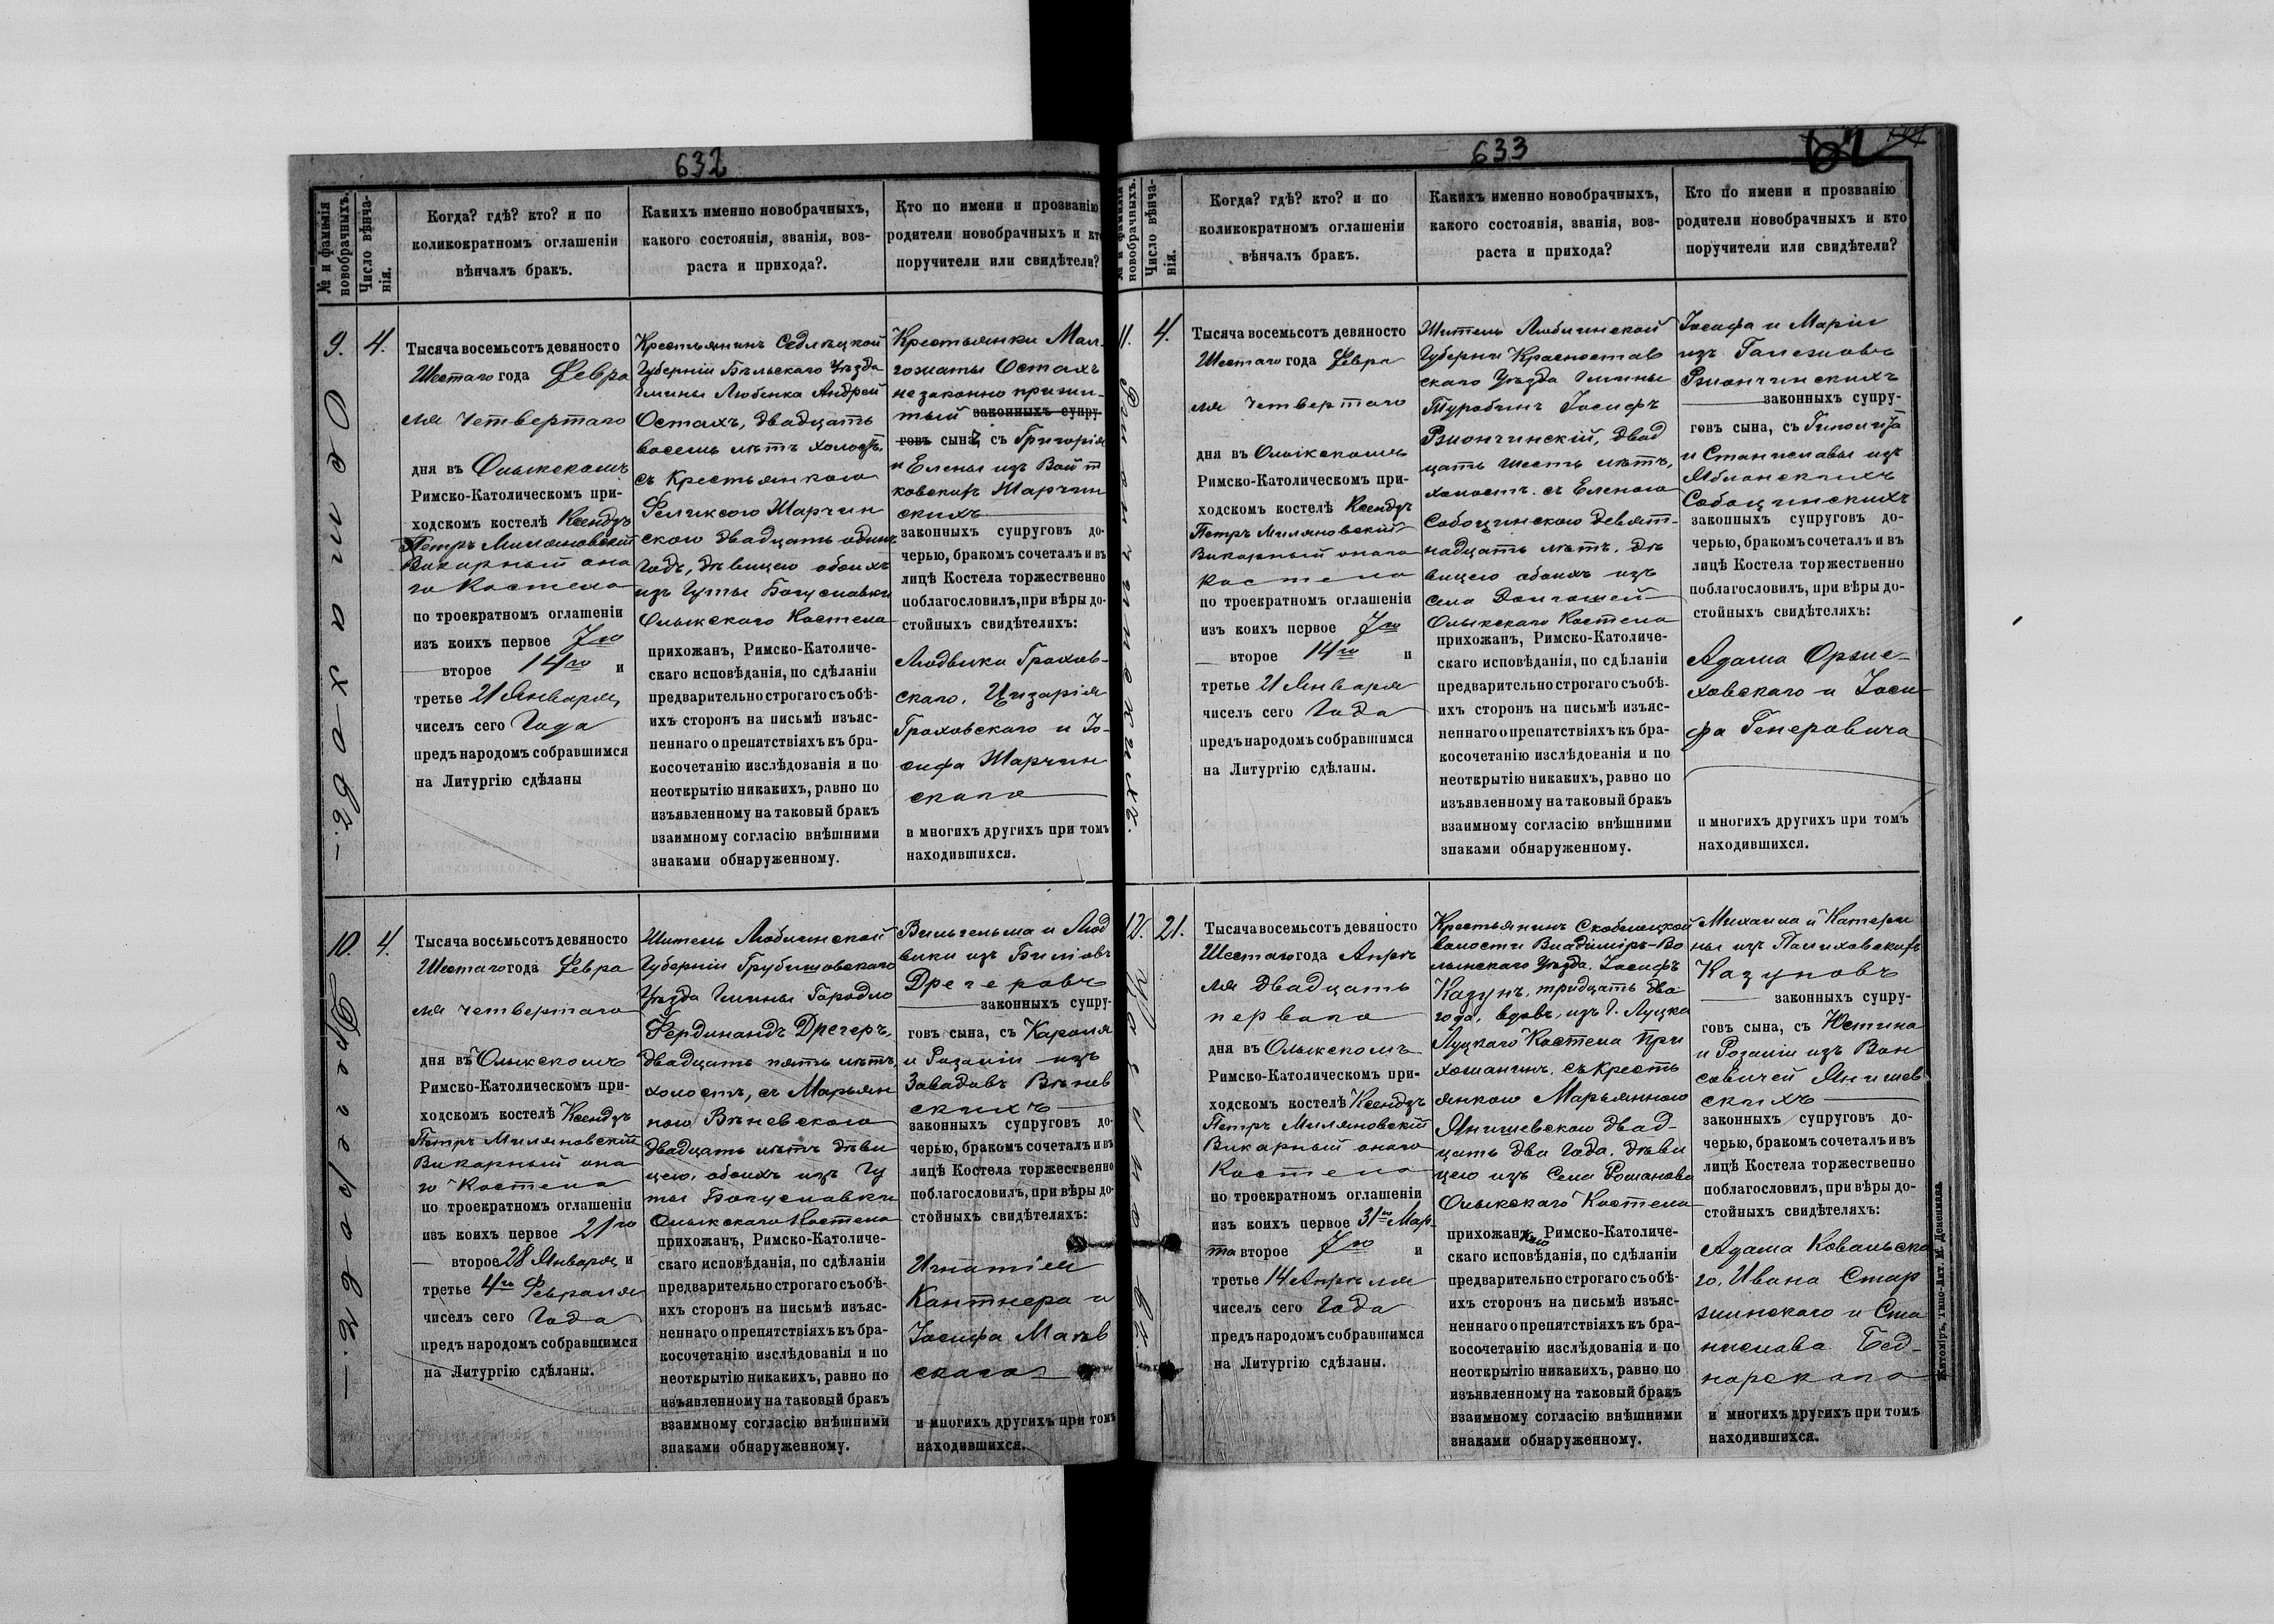 632
№ и фамилія новобрачныхъ.
Число вѣнча-
нія.
Когда? гдѣ? кто? и по
коликократномъ оглашеніи
вѣнчалъ бракъ.
Какихъ именно новобрачныхъ,
какого состоянія, званія, воз-
раста и прихода?.
Кто по имени и прозванію
родители новобрачныхъ и кто
поручители или свидѣтели?
9.
4.
Тысяча восемьсотъ девяносто
Шестаго года Февра
ля четвертаго
дня въ Олыкскомъ
Римско-Католическомъ при-
ходскомъ костелѣ Ксендзъ
Петръ Миляновскій
Викарный она
го Костела
по троекратномъ оглашеніи
изъ коихъ первое 7го
второе 14го и
третье 21 Января
чиселъ сего Года
предъ народомъ собравшимся
на Литургію сдѣланы
Крестьянинъ Сѣдлецкой
Губерніи Бѣльскаго Уѣзда
Гмины Любенка Андрей
Остахъ, двадцать
восемь лѣтъ холостъ,
съ Крестьянкою
Феликсою Марчин
скою двадцать одинъ
Годъ, дѣвицею обоихъ
изъ Гуты Богуславки
Олыкскаго Костела
прихожанъ, Римско-Католиче-
скаго исповѣданія, по сдѣланіи
предварительно строгаго съ обѣ-
ихъ сторонъ на письмѣ изъяс-
неннаго о препятствіяхъ къ бра-
косочетанію изслѣдованія и по
неоткрытію никакихъ, равно по
изъявленному на таковый бракъ
взаимному согласію внѣшними
знаками обнаруженному.
Крестьянки Мал-
гожаты Остахъ
незаконно прижи-
тый законныхъ супру-
говъ сынъ, съ Григорія
и Елены изъ Войт
ковскихъ Марчин
скихъ
законныхъ супруговъ до-
черью, бракомъ сочеталъ и въ
лицѣ Костела торжественно
поблагословилъ, при вѣры до-
стойныхъ свидѣтеляхъ:
Людвика Грохов-
скаго, Цезарія
Гроховскаго и Іо-
сифа Марчин
скаго
и многихъ другихъ при томъ
находившихся.
10.
4.
Тысяча восемьсотъ девяносто
Шестаго года Февра
ля четвертаго
дня въ Олыкскомъ
Римско-Католическомъ при-
ходскомъ костелѣ Ксендзъ
Петръ Миляновскій
Викарный она
го Костела
по троекратномъ оглашеніи
изъ коихъ первое 21го
второе 28 Января и
третье 4го Февраля
чиселъ сего Года
предъ народомъ собравшимся
на Литургію сдѣланы.
Житель Люблинской
Губерніи Грубешовскаго
Уѣзда Гмины Городло
Фердинандъ Дрегеръ,
двадцать пять лѣтъ,
холостъ, съ Марьян
ною Вѣневскою
двадцать лѣтъ дѣви
цею, обоихъ изъ Гу
ты Богуславки
Олыкскаго Костела
прихожанъ, Римско-Католиче-
скаго исповѣданія, по сдѣланіи
предварительно строгаго съ обѣ-
ихъ сторонъ на письмѣ изъяс-
неннаго о препятствіяхъ къ бра-
косочетанію изслѣдованія и по
неоткрытію никакихъ, равно по
изъявленному на таковый бракъ
взаимному согласію внѣшними
знаками обнаруженному.
Вильгельма и Люд
вики изъ
Дрегеровъ
законныхъ супру-
говъ сына, съ Кароля
и Розаліи изъ
Завадовъ Вѣнев
скихъ
законныхъ супруговъ до-
черью, бракомъ сочеталъ и въ
лицѣ Костела торжественно
поблагословилъ, при вѣры до-
стойныхъ свидѣтеляхъ:
Игнатія
Кантнера и
Іосифа
скаго
и многихъ другихъ при томъ
находившихся.
633
Число вѣнча-
нія.
Когда? гдѣ? кто? и по
коликократномъ оглашеніи
вѣнчалъ бракъ.
Какихъ именно новобрачныхъ,
какого состоянія, званія, воз-
раста и прихода?
Кто по имени и прозванію
родители новобрачныхъ и кто
поручители или свидѣтели?
11.
4.
Тысяча восемьсотъ девяносто
Шестаго года Февра
ля четвертаго
дня въ Олыкскомъ
Римско-Католическомъ при-
ходскомъ костелѣ Ксендзъ
Петръ Миляновскій
Викарный онаго
Костела
по троекратномъ оглашеніи
изъ коихъ первое 7го
второе 14го и
третье 21 Января
чиселъ сего Года
предъ народомъ собравшимся
на Литургію сдѣланы.
Житель Люблинской
Губерніи Красностав
скаго Уѣзда Гмины
Туробинъ Іосифъ
Рзюнчинскій, двад
цать шесть лѣтъ,
холостъ. съ Еленою
Собощинскою девят-
надцать лѣтъ. дѣ
вицею обоихъ изъ
села Долгошей
Олыкскаго Костела
прихожанъ, Римско-Католиче-
скаго исповѣданія, по сдѣланіи
предварительно строгаго съ обѣ-
ихъ сторонъ на письмѣ изъяс-
неннаго о препятствіяхъ къ бра-
косочетанію изслѣдованія и по
неоткрытію никакихъ, равно по
изъявленному на таковый бракъ
взаимному согласію внѣшними
знаками обнаруженному.
Іосифа и Маріи
изъ
Рзюнчинскихъ
законныхъ супру-
говъ сына, съ Гиполита
и Станиславы изъ
Яблонскихъ
Собощинскихъ
законныхъ супруговъ до-
черью, бракомъ сочеталъ и въ
лицѣ Костела торжественно
поблагословилъ, при вѣры до-
стойныхъ свидѣтеляхъ:
Адама Орже-
ховскаго и Іоси-
фа Генеровича
и многихъ другихъ при томъ
находившихся.
12.
21.
Тысяча восемьсотъ девяносто
Шестаго года Апрѣ
ля двадцать
перваго
дня въ Олыкскомъ
Римско-Католическомъ при-
ходскомъ костелѣ Ксендзъ
Петръ Миляновскій
Викарный онаго
Костела
по троекратномъ оглашеніи
изъ коихъ первое 31го Мар-
та второе 7го и
третье 14 Апрѣля
чиселъ сего Года
предъ народомъ собравшимся
на Литургію сдѣланы.
Крестьянинъ Скобелецкой
волости Владиміръ-Во
лынскаго Уѣзда. Іосифъ
Казунъ, тридцать два
года, вдовъ, изъ Г. Луцка
Луцкаго Костела При
хожанинъ. съ Кресть
янкою Марьянною
Янишевскою двад-
цать два Года. дѣви
цею изъ Села Романова
Олыкскаго Костела
прихожанкою Римско-Католиче-
скаго исповѣданія, по сдѣланіи
предварительно строгаго съ обѣ-
ихъ сторонъ на письмѣ изъяс-
неннаго о препятствіяхъ къ бра-
косочетанію изслѣдованія и по
неоткрытію никакихъ, равно по
изъявленному на таковый бракъ
взаимному согласію внѣшними
знаками обнаруженному.
Михаила и Катери
ны изъ Палиховскихъ
Казуновъ
законныхъ супру-
говъ сына, съ Юстина
и Розаліи изъ Вон
совичей Янишев
скихъ
законныхъ супруговъ до-
черью, бракомъ сочеталъ и въ
лицѣ Костела торжественно
поблагословилъ, при вѣры до-
стойныхъ свидѣтеляхъ:
Адама Ковальска
го, Ивана Стар
жинскаго и Ста
нислава Бед-
нарскаго
и многихъ другихъ при томъ
находившихся.
Житомiръ, Типо-Лит. М. Дененмана